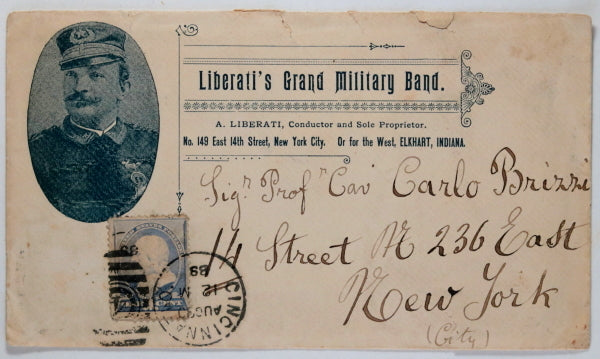 Liberati's Grand Military Band.
A. LIBERATI, Conductor and Sole Proprietor.
No. 149 East 14th Street, New York City. Or for the West, ELKHART, INDIANA.
Sigr Prof r Cav Carlo Brizzi
14 Street N 236 East
New York
(City)
CINCINNA
AUG
12 M
89